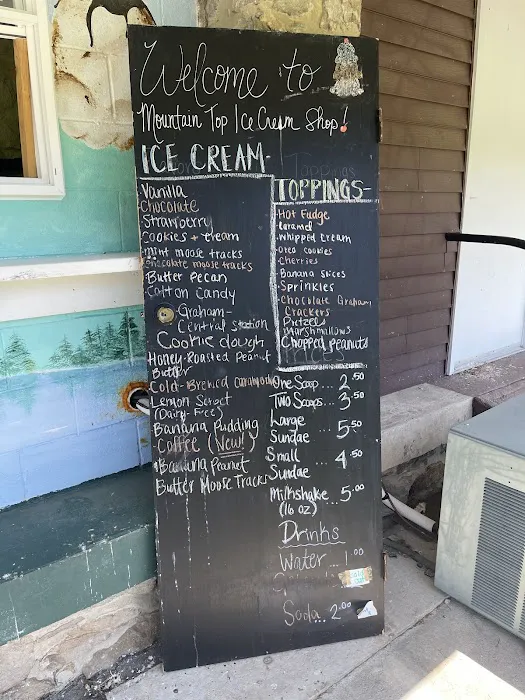 Welcome to
Mountain Top Ice Cream Shop!
ICE CREAM-
Vanilla
Chocolate
Strawberry
Cookies + cream
mint moose tracks
chocolate moose tracks
Butter Pecan
Cotton Candy
Graham-
Central Station
Cookie dough
Honey-Roasted Peanut
Butter
Cold-Brewed
Lemon Sorbet
(Dairy-Free)
Banana Pudding
Coffee (New!)
*Banana Peanut
Butter Moose Tracks
Toppings
TOPPINGS-
Hot Fudge
Caramel
Whipped Cream
Oreo Cookies
Cherries
Banana Slices
Sprinkles
Chocolate Graham
Crackers
Pretzels
Marshmallows
Chopped Peanuts
Prices
One Scoop... 2.50
Two Scoops... 3.50
Large
Sundae ... 5.50
Small
Sundae ... 4.50
Milkshake ... 5.00
(16 oz)
Drinks
Water ... 1.00
Soda... 2.00